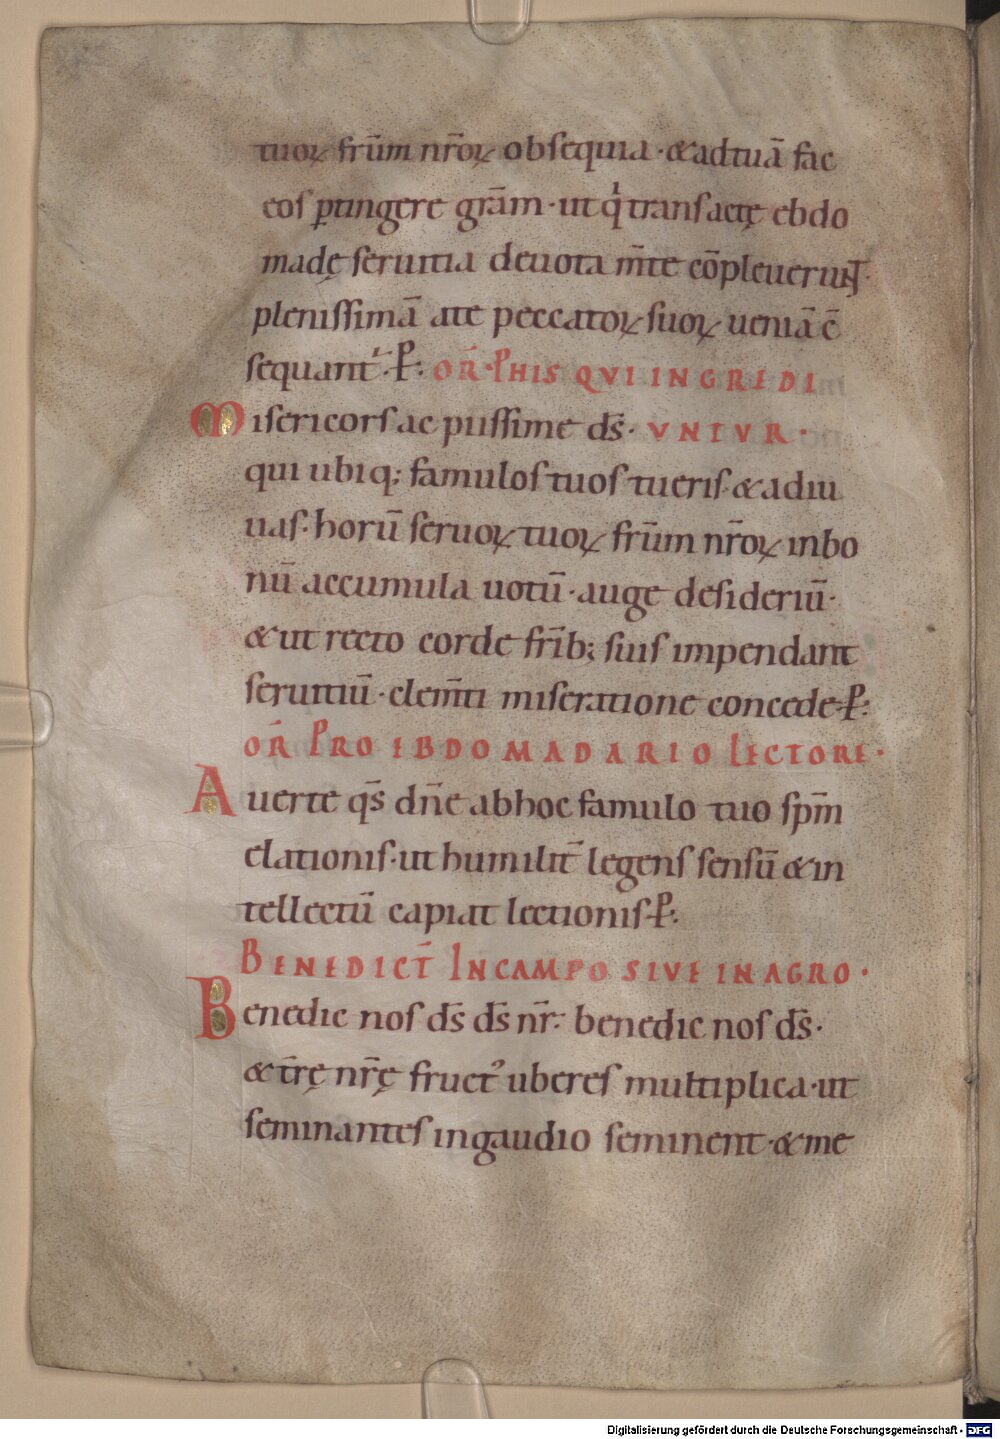 tuoꝝ fr̄um nr̄oꝝ obsequia · & ad tuā fac
eos ꝑtingere grām · ut qⁱ transactę ebdo
madę seruitia deuota m̄te cōpleuerint ·
plenissimā a te peccatoꝝ suoꝝ ueniā c̄
sequant̄ · P̄ : OR̄ · P HIS QVI INGREDI
Misericors ac piissime d̄s · VNTVR ·
qui ubiq; famulos tuos tueris · & adiu
uas · horū seruoꝝ tuoꝝ fr̄um nr̄oꝝ in bo
nū accumula uotū · auge desideriū ·
& ut recto corde fr̄ib; suis impendant
seruitiū · clem̄ti miseratione concede · P̄ :
OR̄ PRO EBDOMADARIO LECTORE ·
Auerte q̄s dn̄e ab hoc famulo tuo sp̄m
elationis · ut humilit̄ legens sensū & in
tellectū capiat lectionis · P̄ :
BENEDICT̄ IN CAMPO SIVE IN AGRO ·
Benedic nos d̄s d̄s nr̄ : benedic nos d̄s ·
& t̄rę nr̄ę fruct᾿ uberes multiplica · ut
seminantes in gaudio seminent · & me
Digitalisierung gefördert durch die Deutsche Forschungsgemeinschaft - DFG